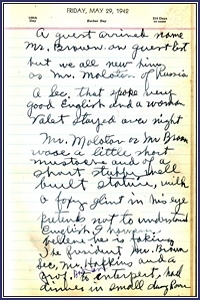 FRIDAY, MAY 29, 1942
A guest arrived name
Mr. Brown on guest list
but we all new him
as Mr. Molotov of Russia
A Sec. that spoke very
good English and a woman
Valet stayed over night
Mr. Molotov or Mr Brown
was a little short
mustache and of a
short stubby well
built stature, with
a foxy glint in his eye
not to understand
English, I however
believe he is faking
The President Mr. Brown
Sec, Mr. Hopkins and a
Prof. to enterpret, had
dinner in small dining Room